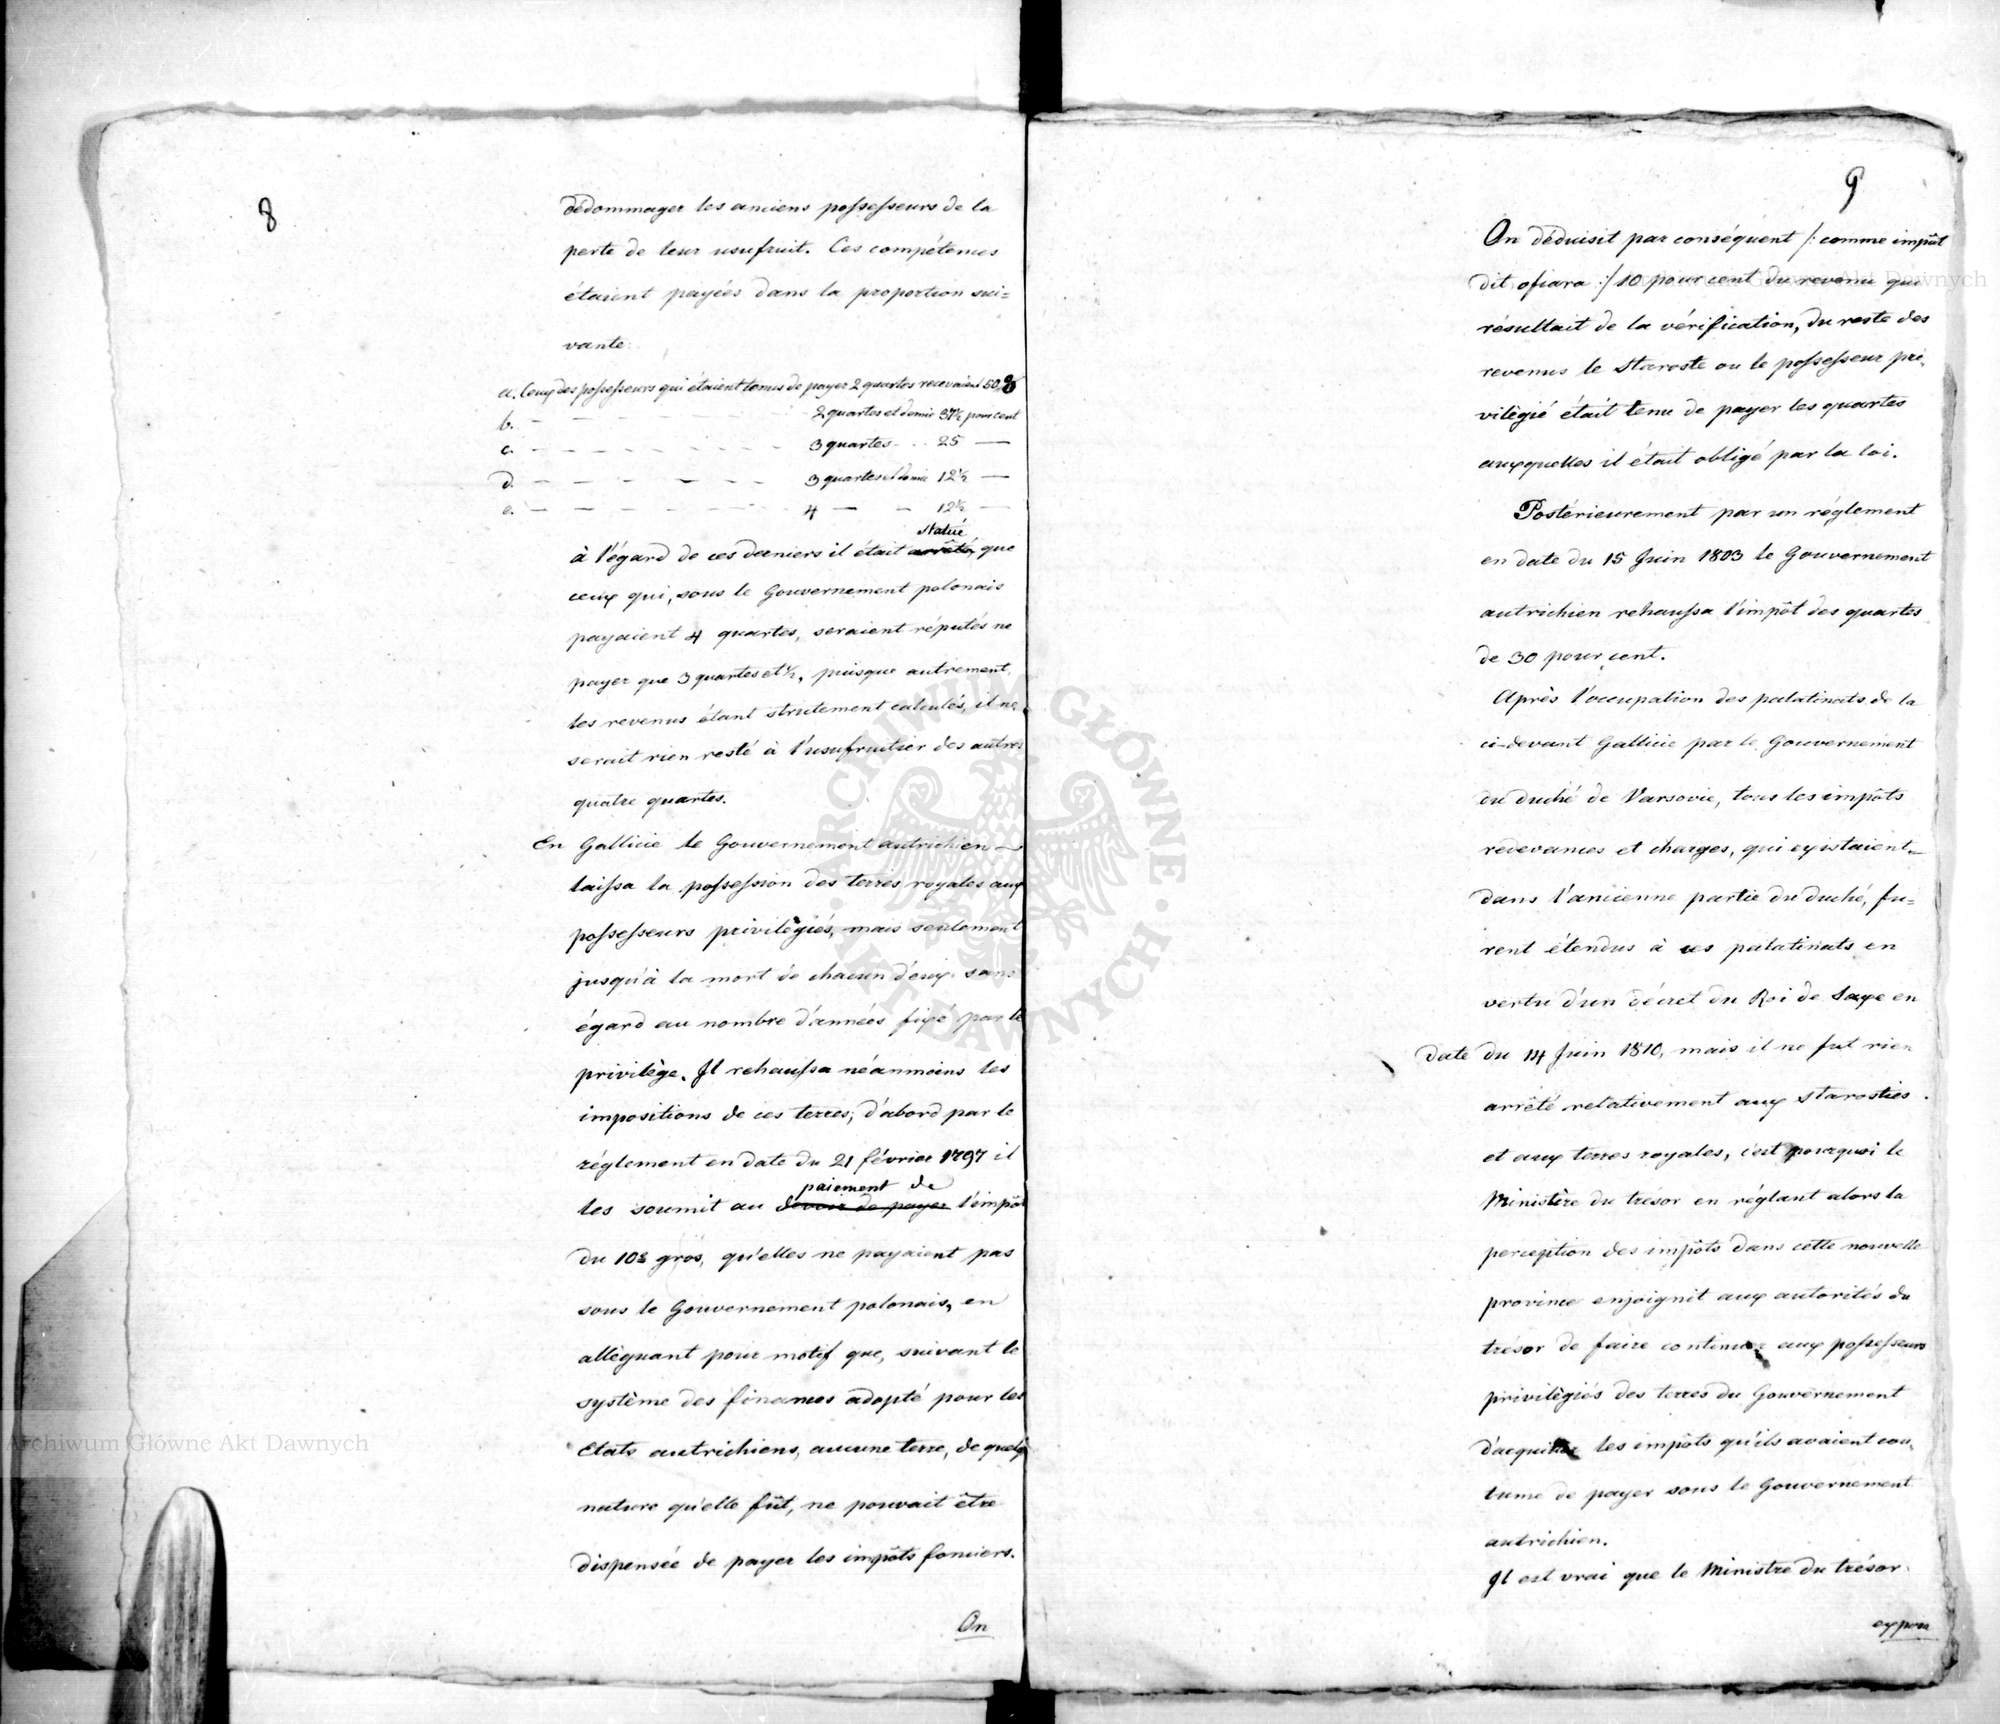 8
dédommager les anciens possesseurs de la
perte de leur usufruit. Ces compétences
étaient payées dans la proportion sui=
vante:
a. Ceux des possesseurs qui étaient tenus de payer 2 quartes recevaient 50 %
b. - - - - - 2 quartes et demie 37½ pour cent
c. - - - - - - 3 quartes - - 25 —
d. - - - - - - 3 quartes et demie 12½ —
e. - - - - - - 4 — - 12½ —
statué
à l'égard de ces derniers il était arrêté, que
ceux qui, sous le Gouvernement polonais
payaient 4 quartes, seraient réputés ne
payer que 3 quartes et ½, puisque autrement,
les revenus étant strictement calculés, il ne
serait rien resté à l'usufruitier des autres
quatre quartes.
En Gallicie le Gouvernement autrichien
laissa la possession des terres royales aux
possesseurs privilègiés, mais seulement
jusqu'à la mort de chacun d'eux sans
égard au nombre d'années fixé par le
privilège. Il rehaussa néanmoins les
impositions de ces terres; d'abord par le
réglement en date du 21 février 1797 il
paiement de
les soumit au devoir de payer l'impôt
du 10e gros, qu'elles ne payaient pas
sous le Gouvernement polonais, en
allèguant pour motif que, suivant le
système des finances adopté pour les
Etats autrichiens, aucune terre, de quelq
nature qu'elle fût, ne pouvait être
dispensée de payer les impôts fonciers.
On
9
On déduisit par conséquent /: comme impôt
dit ofiara :/ 10 pour cent du revenu qui
résultait de la vérification, du reste des
revenus le Staroste ou le possesseur pri-
vilègié était tenu de payer les quartes
auxquelles il était obligé par la loi.
Postérieurement par un réglement
en date du 15 Juin 1803 le Gouvernement
autrichien rehaussa l'impôt des quartes
de 30 pour cent.
Après l'occupation des palatinats de la
ci-devant Gallicie par le Gouvernement
du duché de Varsovie, tous les impôts
redevances et charges, qui existaient
dans l'ancienne partie du duché, fu=
rent étendus à ces palatinats en
vertu d'un décret du Roi de Saxe en
date du 14 Juin 1810, mais il ne fut rien
arrêté relativement aux starosties
et aux terres royales, c'est pourquoi le
Ministère du trésor en réglant alors la
perception des impôts dans cette nouvelle
province enjoignit aux autorités du
trésor de faire continuer aux possesseurs
privilègiés des terres du Gouvernement
d'acquitter les impôts qu'ils avaient cou-
tume de payer sous le Gouvernement
autrichien.
Il est vrai que le Ministre du trésor
exposa
Archiwum Główne Akt Dawnych
Archiwum Główne Akt Dawnych
ARCHIWUM GŁÓWNE AKT DAWNYCH